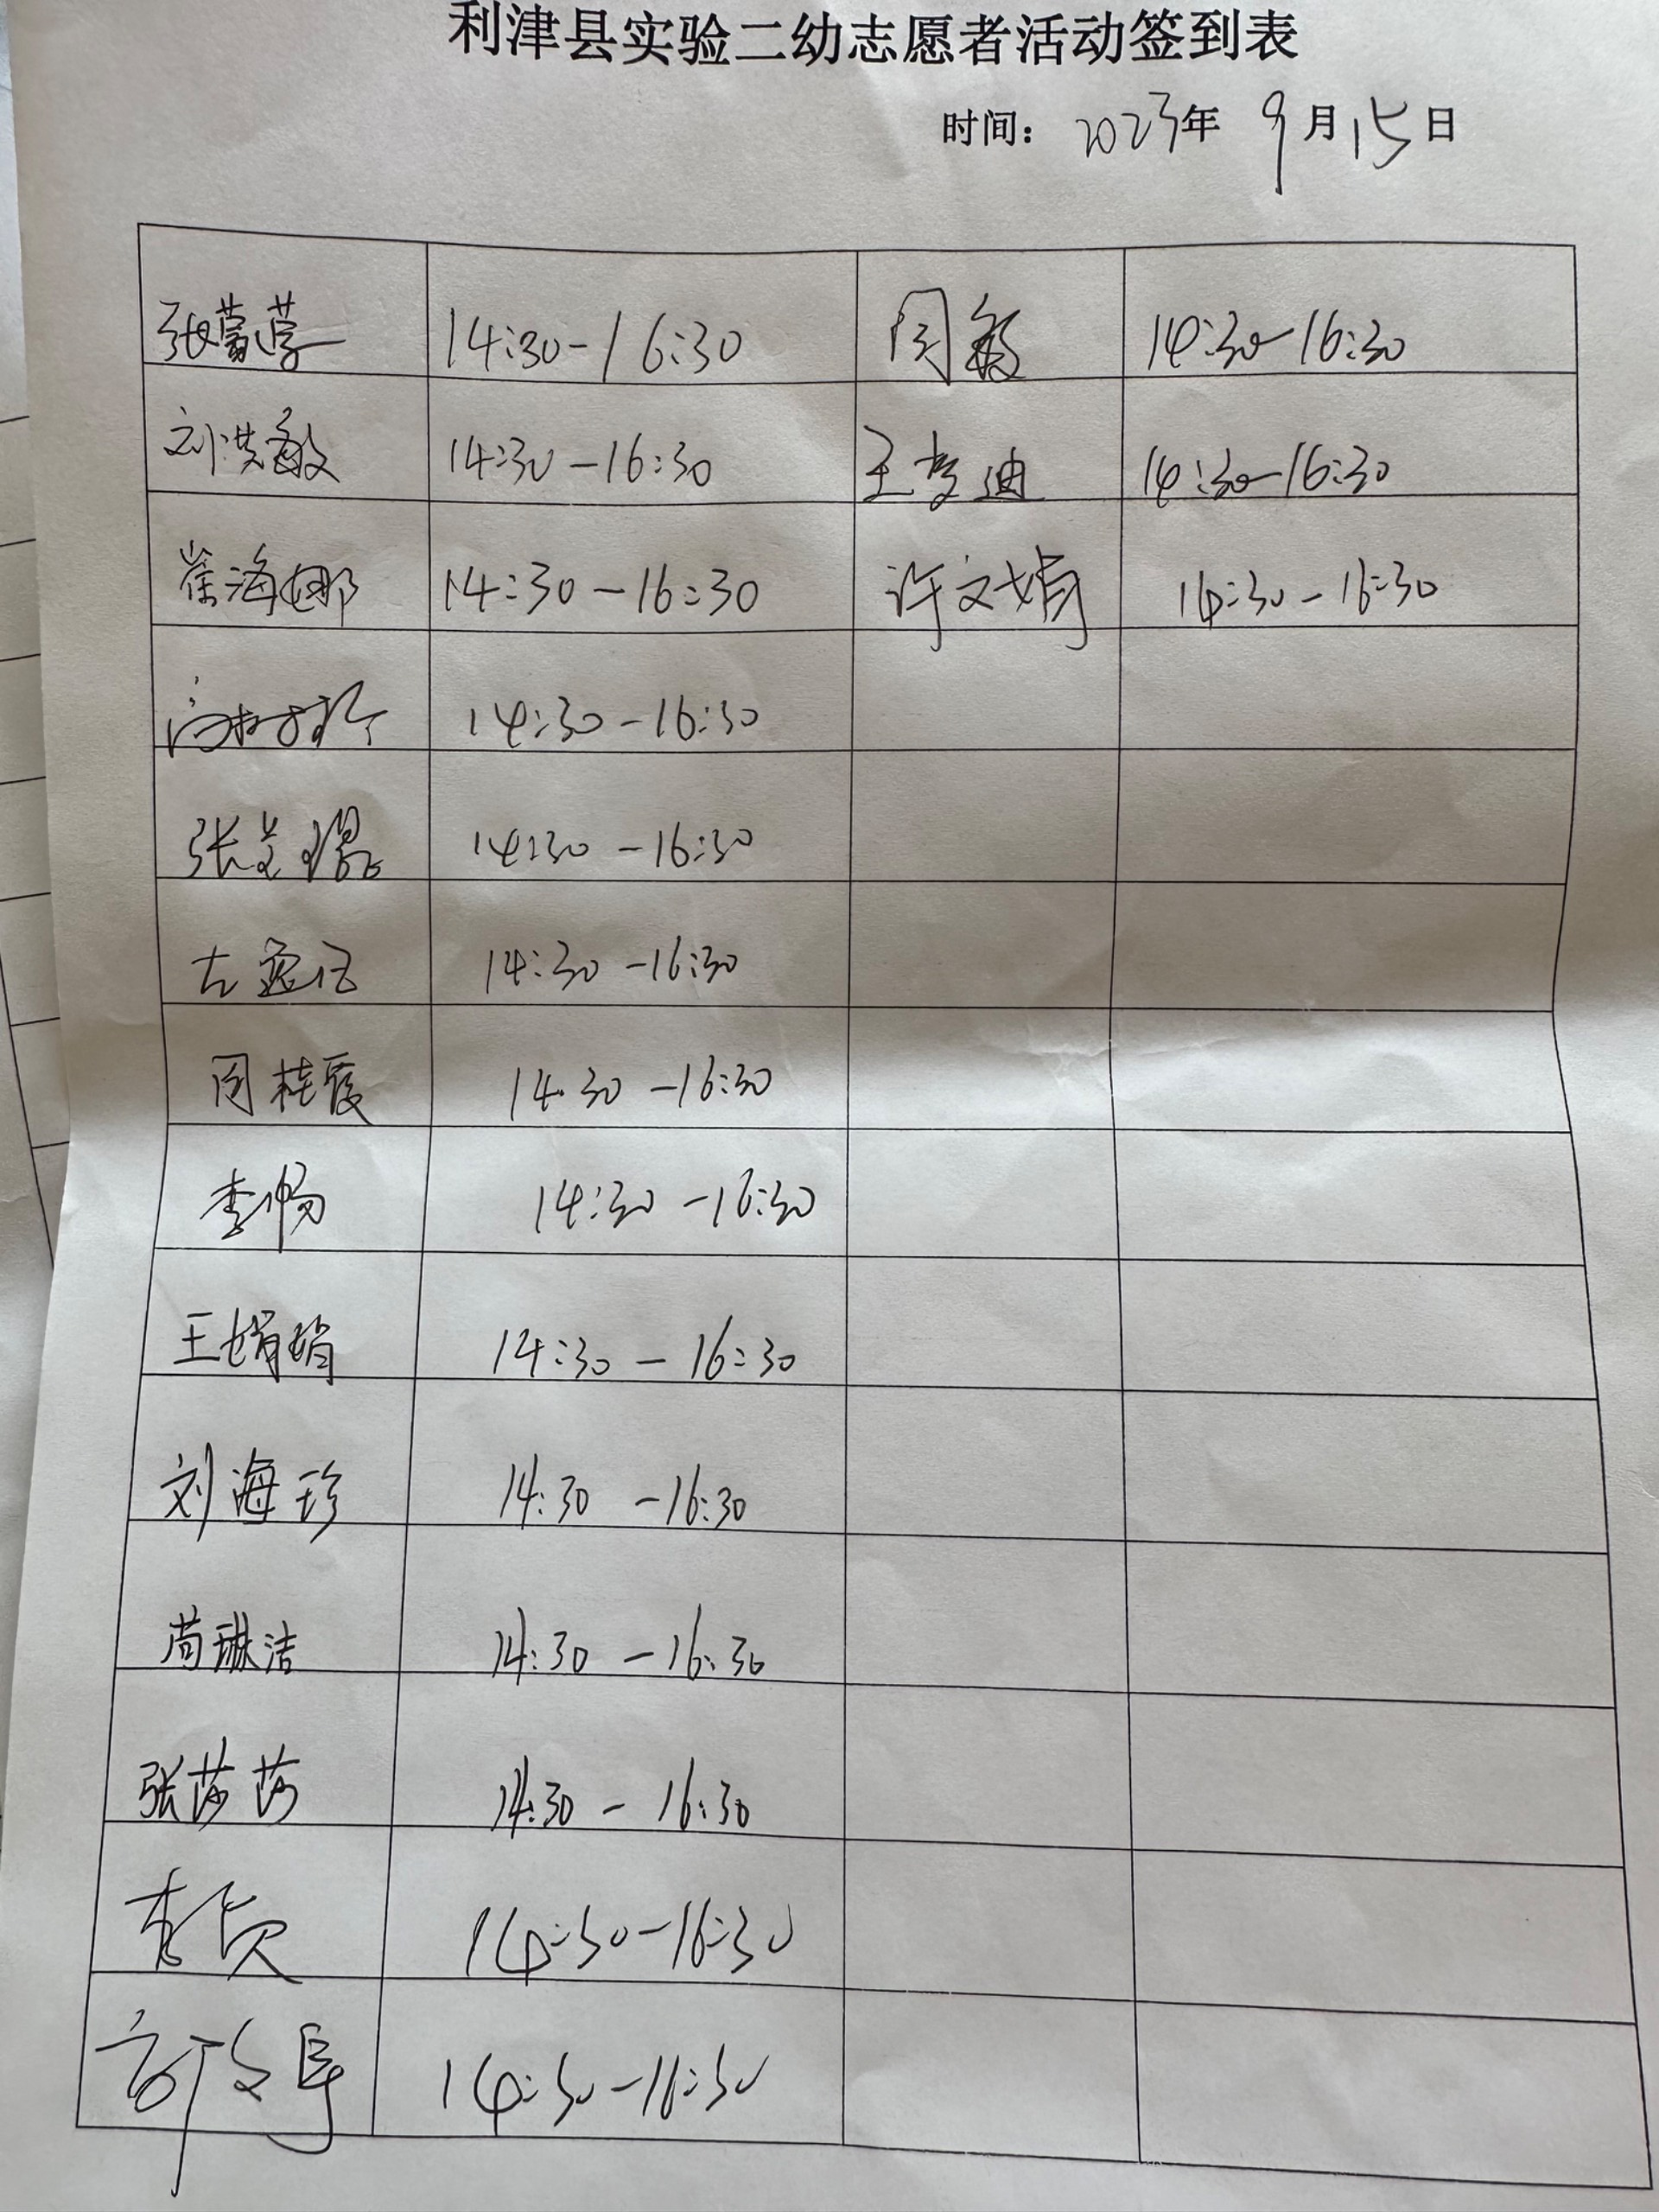 利津县实验二幼志愿者活动签到表
时间: 2023年 9月15日
张蒙蒙 14:30-16:30 周敏 14:30-16:30
刘洪敏 14:30-16:30 王梦迪 14:30-16:30
崔海娜 14:30-16:30 许文娟 14:30-16:30
14:30-16:30
张芝 14:30-16:30
14:30-16:30
周桂霞 14:30-16:30
李畅 14:30-16:30
王娟娟 14:30-16:30
刘海珍 14:30-16:30
苟琳洁 14:30-16:30
张莎莎 14:30-16:30
李 14:30-16:30
14:30-16:30